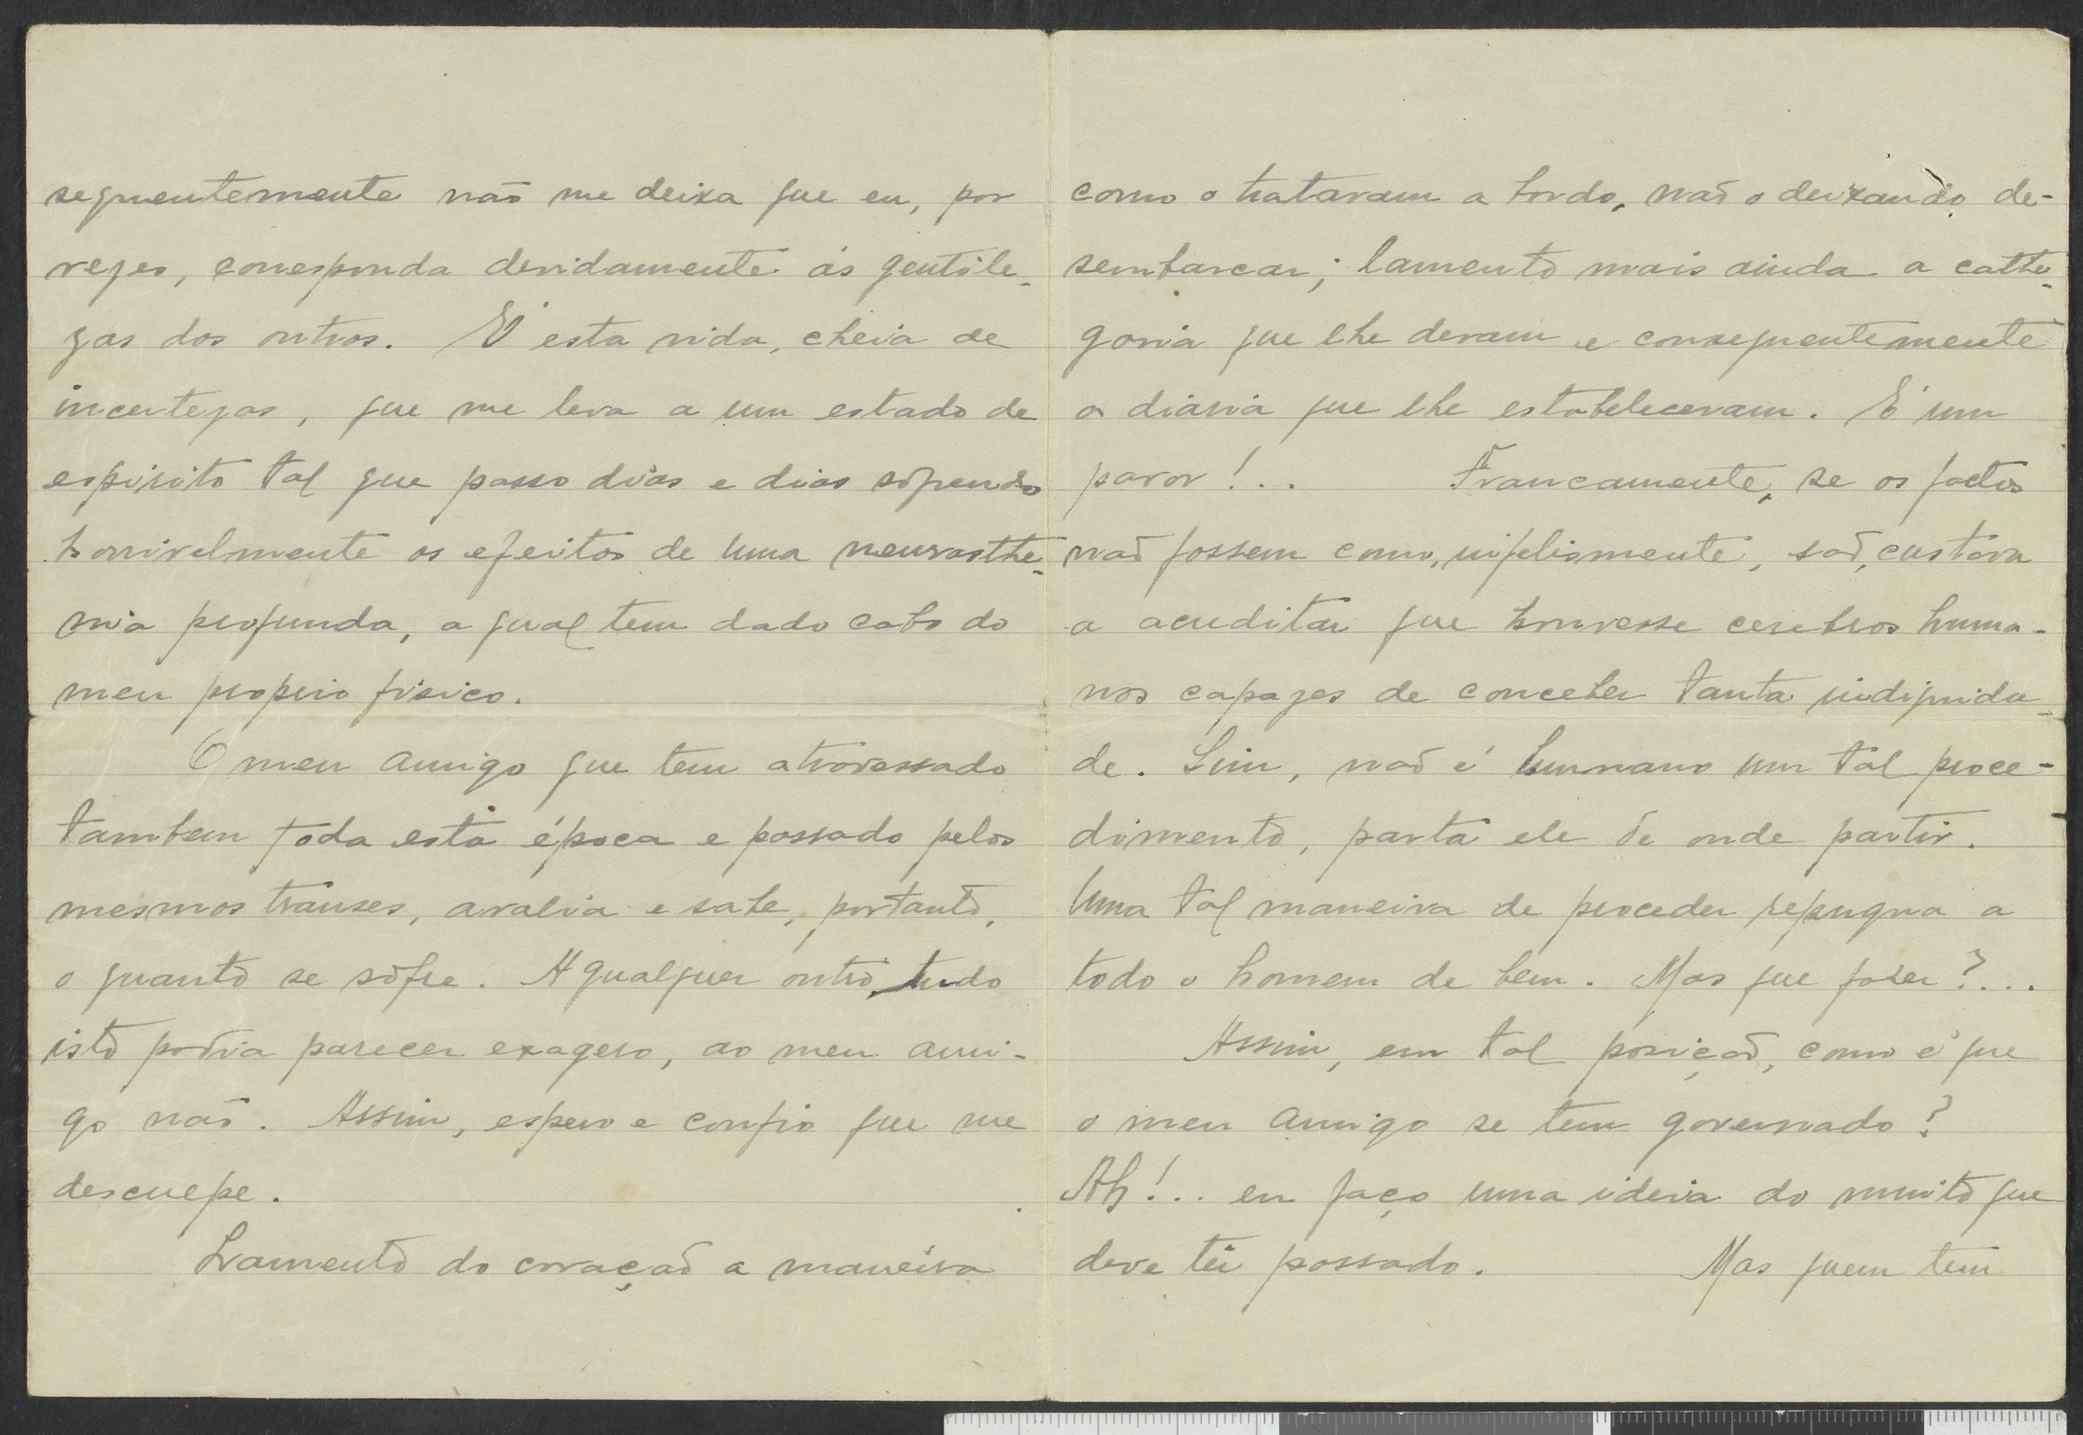 sequentemente não me deixa que eu, por
vezes, corresponda devidamente ás gentile-
zas dos outros. É esta vida, cheia de
incertezas, que me leva a um estado de
espirito tal que passo dias e dias sofrendo
horrivelmente os efeitos de uma neurasthe-
nia profunda, a qual tem dado cabo do
meu proprio fisico.
O meu amigo que tem atravessado
tambem toda esta época e passado pelos
mesmos transes, avalia e sabe, portanto,
o quanto se sofre. A qualquer outro, tudo
isto podia parecer exagero, ao meu ami-
go não. Assim, espero e confio que me
desculpe.
Lamento do coração a maneira
como o trataram a bordo, não o deixando de-
sembarcar; lamento mais ainda a cathe-
goria que lhe deram e consequentemente
a diaria que lhe estabeleceram. É um
pavor!.. Francamente, se os factos
não fossem como, infelismente, são, custava
a acreditar que houvesse cerebros huma-
nos capazes de conceber tanta indignida-
de. Sim, não é humano um tal proce-
dimento, parta ele de onde partir.
Uma tal maneira de proceder repugna a
todo o homem de bem. Mas que fazer?...
Assim, em tal posição, como é que
o meu amigo se tem governado?
Ah!.. eu faço uma ideia do muito que
deve têr passado. Mas quem tem